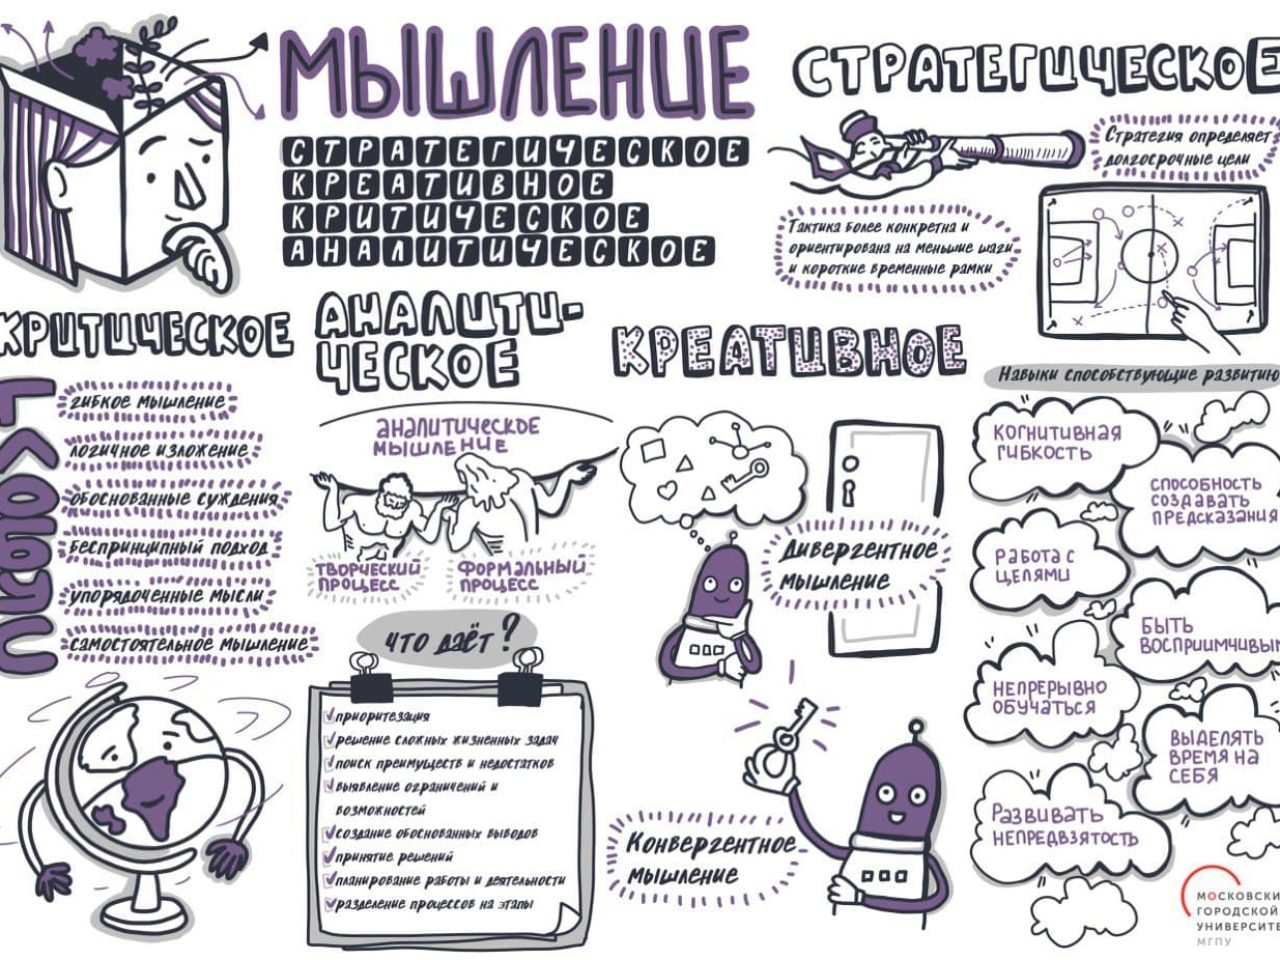 МЫШЛЕНИЕ
СТРАТЕГИЧЕСКОЕ
КРЕАТИВНОЕ
КРИТИЧЕСКОЕ
АНАЛИТИЧЕСКОЕ
СТРАТЕГИЧЕСКОЕ
Стратегия определяет
долгосрочные цели
Тактика более конкретна и
ориентирована на меньшие шаги
и короткие временные рамки
Навыки способствующие развитию
КОГНИТИВНАЯ
ГИБКОСТЬ
СПОСОБНОСТЬ
СОЗДАВАТЬ
ПРЕДСКАЗАНИЯ
РАБОТА С
ЦЕЛЯМИ
БЫТЬ
ВОСПРИИМЧИВЫМ
НЕПРЕРЫВНО
ОБУЧАТЬСЯ
ВЫДЕЛЯТЬ
ВРЕМЯ НА
СЕБЯ
РАЗВИВАТЬ
НЕПРЕДВЗЯТОСТЬ
КРИТИЧЕСКОЕ
гибкое мышление
логичное изложение
обоснованные суждения
беспринципный подход
упорядоченные мысли
самостоятельное мышление
АНАЛИТИ-
ЧЕСКОЕ
АНАЛИТИЧЕСКОЕ
МЫШЛЕНИЕ
ТВОРЧЕСКИЙ
ПРОЦЕСС
ФОРМАЛЬНЫЙ
ПРОЦЕСС
что даёт?
приоритезация
решение сложных жизненных задач
поиск преимуществ и недостатков
выявление ограничений и
возможностей
создание обоснованных выводов
принятие решений
планирование работы и деятельности
разделение процессов на этапы
КРЕАТИВНОЕ
Дивергентное
мышление
Конвергентное
мышление
МОСКОВСКИ
ГОРОДСКОЙ
УНИВЕРСИТЕ
МГПУ